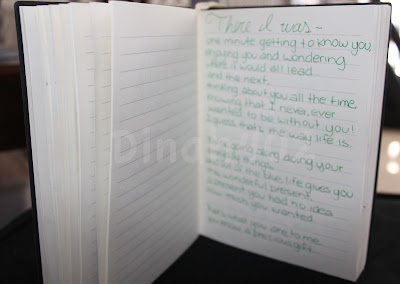 There I was -
one minute getting to know you,
enjoying you and wondering
where it would all lead...
and the next,
thinking about you all the time
knowing that I never, ever
wanted to be without you!
I guess that's the way life is.
You're going along doing your
everyday things,
and out of the blue, life gives you
the wonderful present,
a present you had no idea
how much you wanted.
That's what you are to me,
you know, a precious gift.